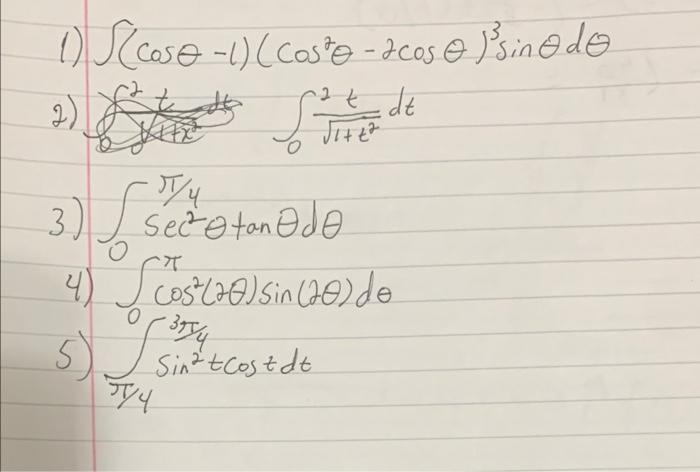 1) ∫(cosθ-1)(cos²θ-2cosθ)³sinθdθ
2) ∫₀² t/√(1+t²) dt
3) ∫₀^(π/4) sec²θtanθdθ
4) ∫₀^π cos²(2θ)sin(2θ)dθ
5) ∫_(π/4)^(3π/4) sin²tcostdt